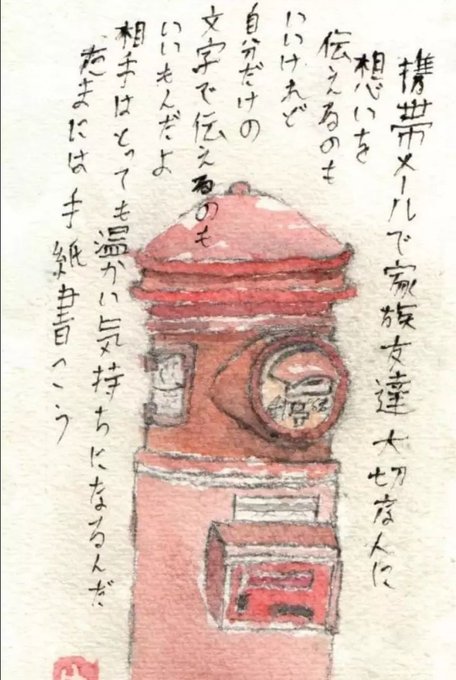 携帯メールで家族友達大切な人に
想いを
伝えるのも
いいけれど
自分だけの
文字で伝えるのも
いいもんだよ
相手はとっても温かい気持ちになるんだ
まには手紙書こう